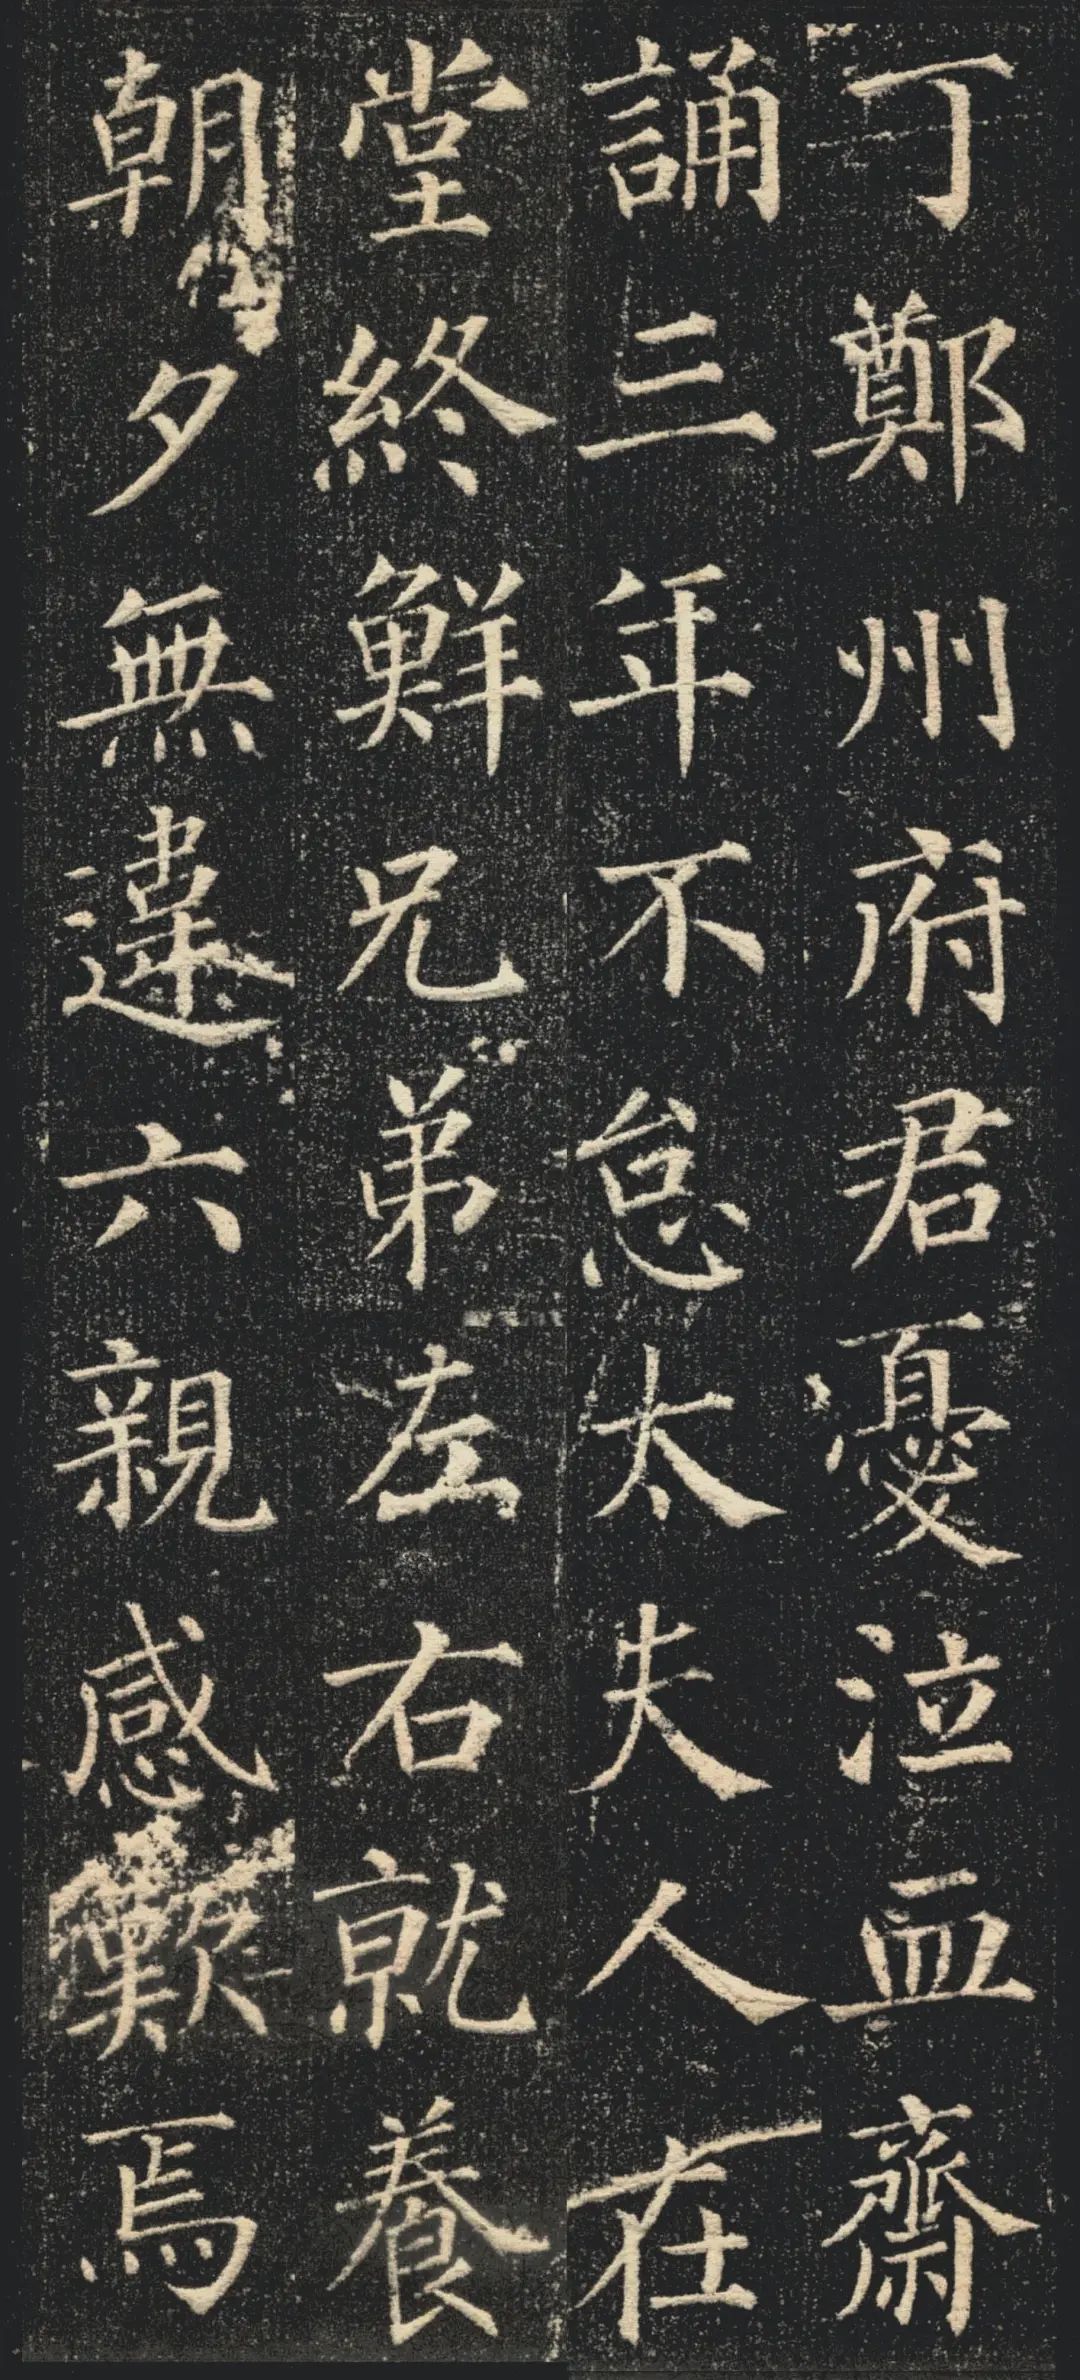 丁鄭州府君憂泣血齋
誦三年不怠太夫人在
堂終鮮兄弟左右就養
朝夕無違六親感歎焉